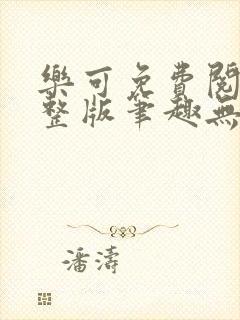 樂可免費閱
整版筆趣無
潘濤